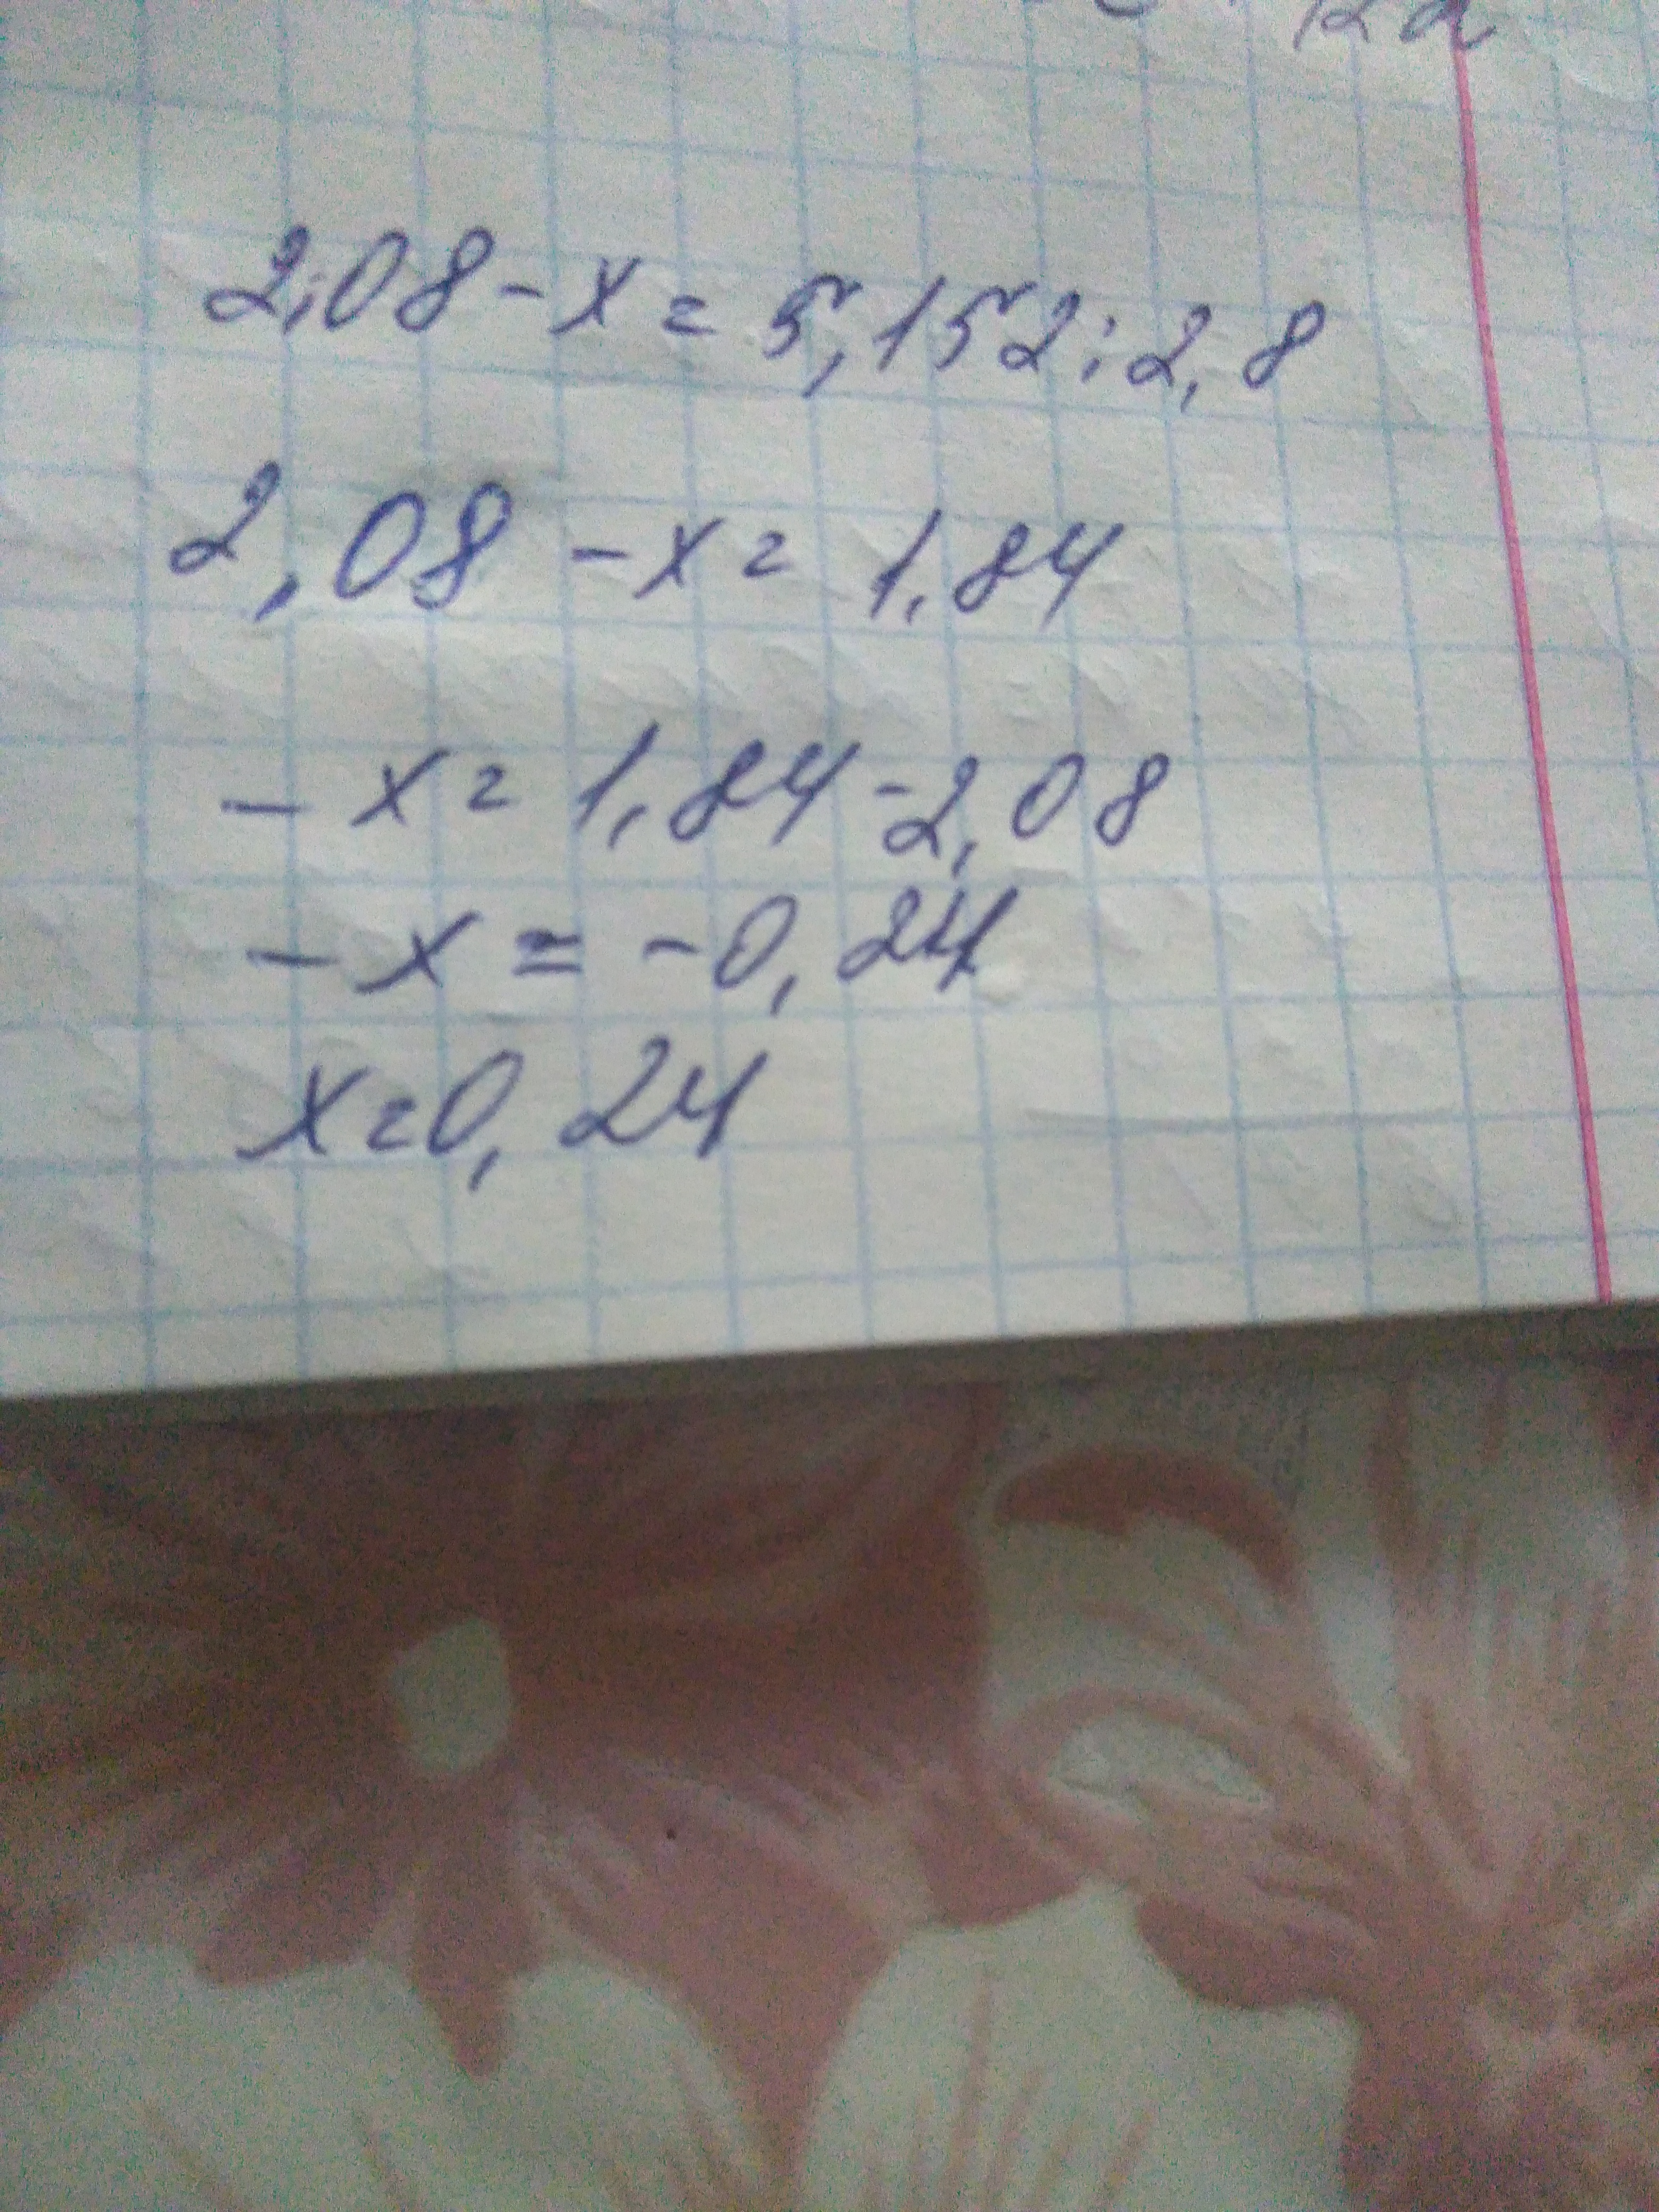 2,08 - x = 5,152 : 2,8
2,08 - x = 1,84
- x = 1,84 - 2,08
- x = -0,24
x = 0,24